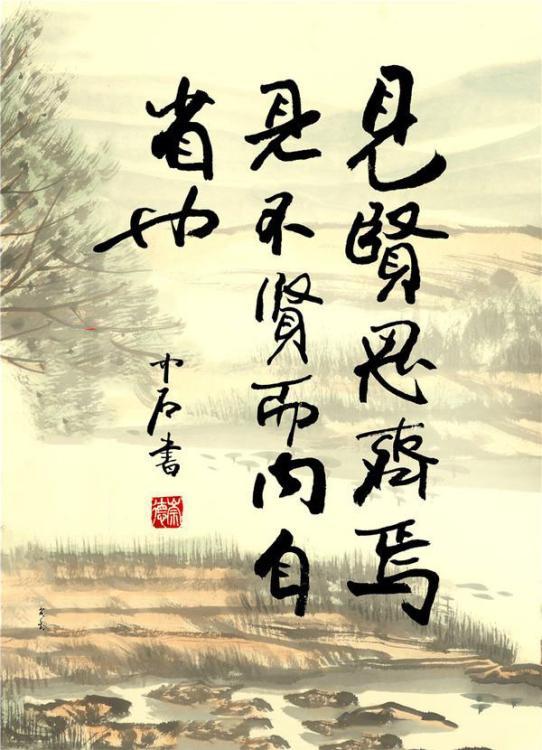 見賢思齊焉
見不賢而内自
省也
中石書
崇德